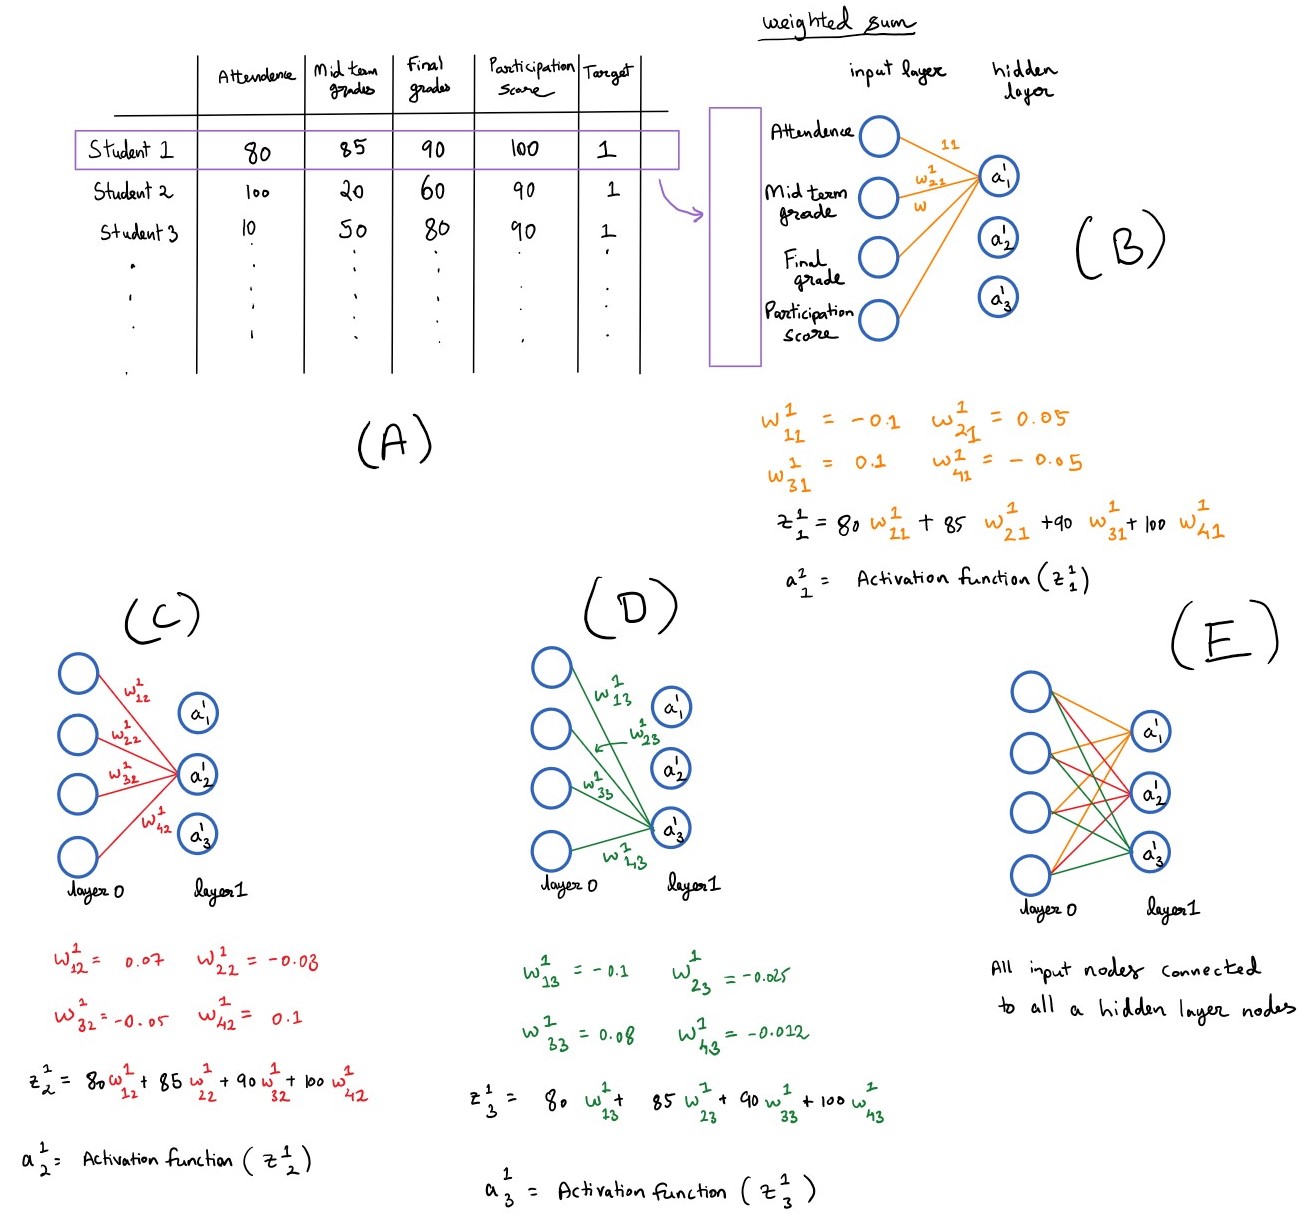 weighted sum
Attendence Mid term grades Final grades Participation score Target
Student 1 80 85 90 100 1
Student 2 100 20 60 90 1
Student 3 10 50 80 90 1
(A)
input layer hidden layer
Attendence
Mid term grade
Final grade
Participation score
11
w^1_21
w
a^1_1
a^1_2
a^1_3
(B)
w^1_11 = -0.1 w^1_21 = 0.05
w^1_31 = 0.1 w^1_41 = -0.05
z^1_1 = 80 w^1_11 + 85 w^1_21 + 90 w^1_31 + 100 w^1_41
a^2_1 = Activation function (z^1_1)
(C)
w^1_12
w^1_22
w^1_32
w^1_42
a^1_1
a^1_2
a^1_3
layer 0 layer 1
w^1_12 = 0.07 w^1_22 = -0.03
w^1_32 = -0.05 w^1_42 = 0.1
z^1_2 = 80 w^1_12 + 85 w^1_22 + 90 w^1_32 + 100 w^1_42
a^1_2 = Activation function (z^1_2)
(D)
w^1_13
w^1_23
w^1_33
w^1_43
a^1_1
a^1_2
a^1_3
layer 0 layer 1
w^1_13 = -0.1 w^1_23 = -0.025
w^1_33 = 0.08 w^1_43 = -0.012
z^1_3 = 80 w^1_13 + 85 w^1_23 + 90 w^1_33 + 100 w^1_43
a^1_3 = Activation function (z^1_3)
(E)
a^1_1
a^1_2
a^1_3
layer 0 layer 1
All input nodes connected
to all a hidden layer nodes